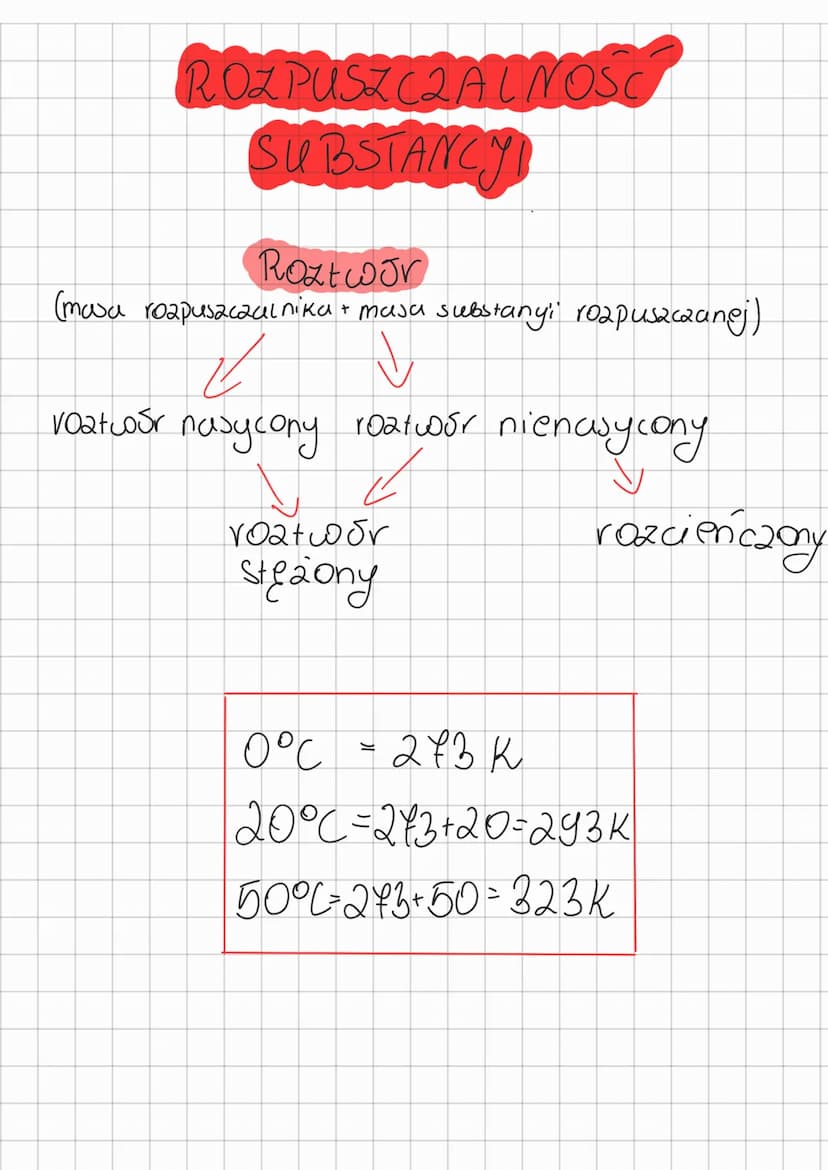 ROZPUSZCZALNOŚĆ
SUBSTANCYI
Roztwór
(masa rozpuszczalnika + masa substanyi rozpuszczanej)
roztwór nasycony roztwór nienasycony
roztwór rozcieńczony
stężony
0°C = 273 K
20°C=273+20=293K
50°C=273+50=323K